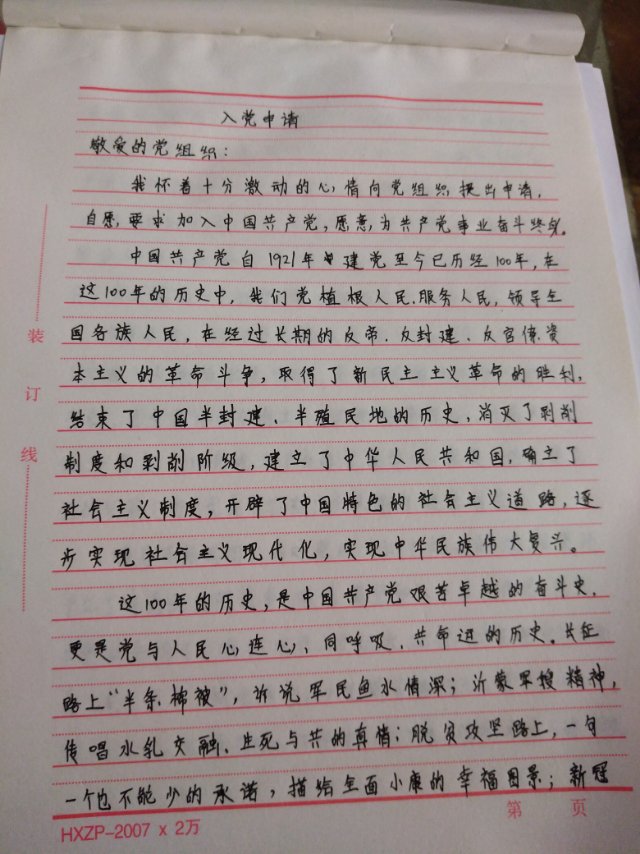 入党申请
敬爱的党组织：
我怀着十分激动的心情向党组织提出申请，
自愿要求加入中国共产党，愿意为共产党事业奋斗终身。
中国共产党自1921年建党至今已历经100年，在
这100年的历史中，我们党植根人民、服务人民，领导全
国各族人民，在经过长期的反帝、反封建、反官僚资
本主义的革命斗争，取得了新民主主义革命的胜利，
结束了中国半封建、半殖民地的历史，消灭了剥削
制度和剥削阶级，建立了中华人民共和国，确立了
社会主义制度，开辟了中国特色的社会主义道路，逐
步实现社会主义现代化，实现中华民族伟大复兴。
这100年的历史，是中国共产党艰苦卓越的奋斗史，
更是党与人民心连心、同呼吸、共命运的历史。长征
路上“半条棉被”，诉说军民鱼水情深；沂蒙军嫂精神，
传唱水乳交融、生死与共的真情；脱贫攻坚路上，一句
一个也不能少的承诺，描绘全面小康的幸福图景；新冠
装
订
线
第 页
HXZP-2007 x 2万